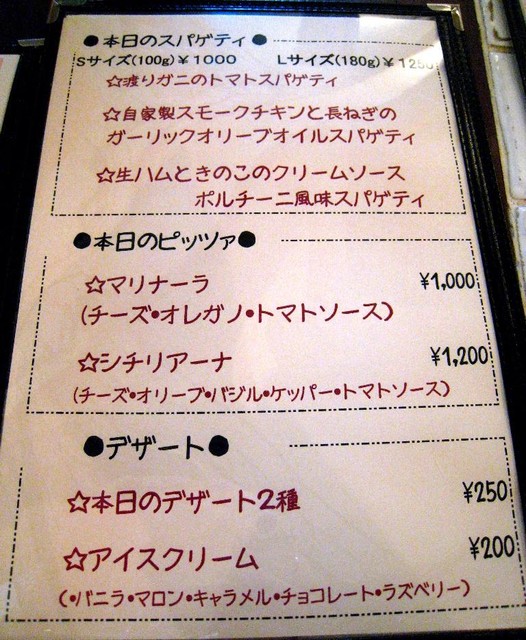 ●本日のスパゲティ●
Sサイズ(100g)￥1000 Lサイズ(180g)￥1250
☆渡りガニのトマトスパゲティ
☆自家製スモークチキンと長ねぎの
ガーリックオリーブオイルスパゲティ
☆生ハムときのこのクリームソース
ポルチーニ風味スパゲティ
●本日のピッツァ●
☆マリナーラ ¥1,000
(チーズ•オレガノ•トマトソース)
☆シチリアーナ ¥1,200
(チーズ•オリーブ•バジル•ケッパー•トマトソース)
●デザート●
☆本日のデザート2種 ¥250
☆アイスクリーム ¥200
(•バニラ•マロン•キャラメル•チョコレート•ラズベリー)